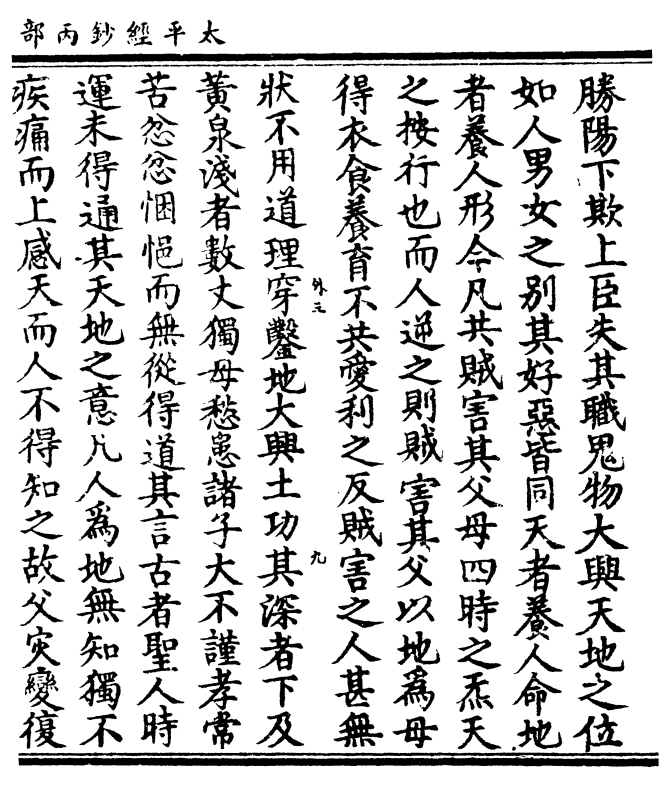 太平經鈔丙部
勝陽下欺上臣失其職鬼物大興天地之位
如人男女之別其好惡皆同天者養人命地
者養人形今凡共賊害其父母四時之炁天
之按行也而人逆之則賊害其父以地爲母
得衣食養育不共愛利之反賊害之人甚無
狀不用道理穿鑿地大興土功其深者下及
黃泉淺者數丈獨母愁恚諸子大不謹孝常
苦忿忿悃悒而無從得道其言古者聖人時
運未得通其天地之意凡人爲地無知獨不
疾痛而上感天而人不得知之故父灾變復
外三
九